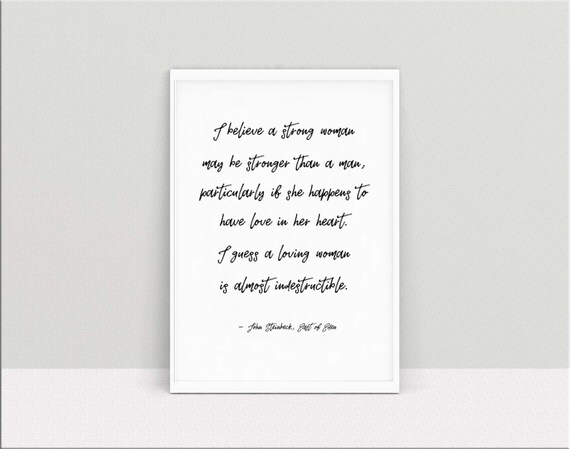 I believe a strong woman
may be stronger than a man,
particularly if she happens to
have love in her heart.
I guess a loving woman
is almost indestructible.
- John Steinbeck, East of Eden